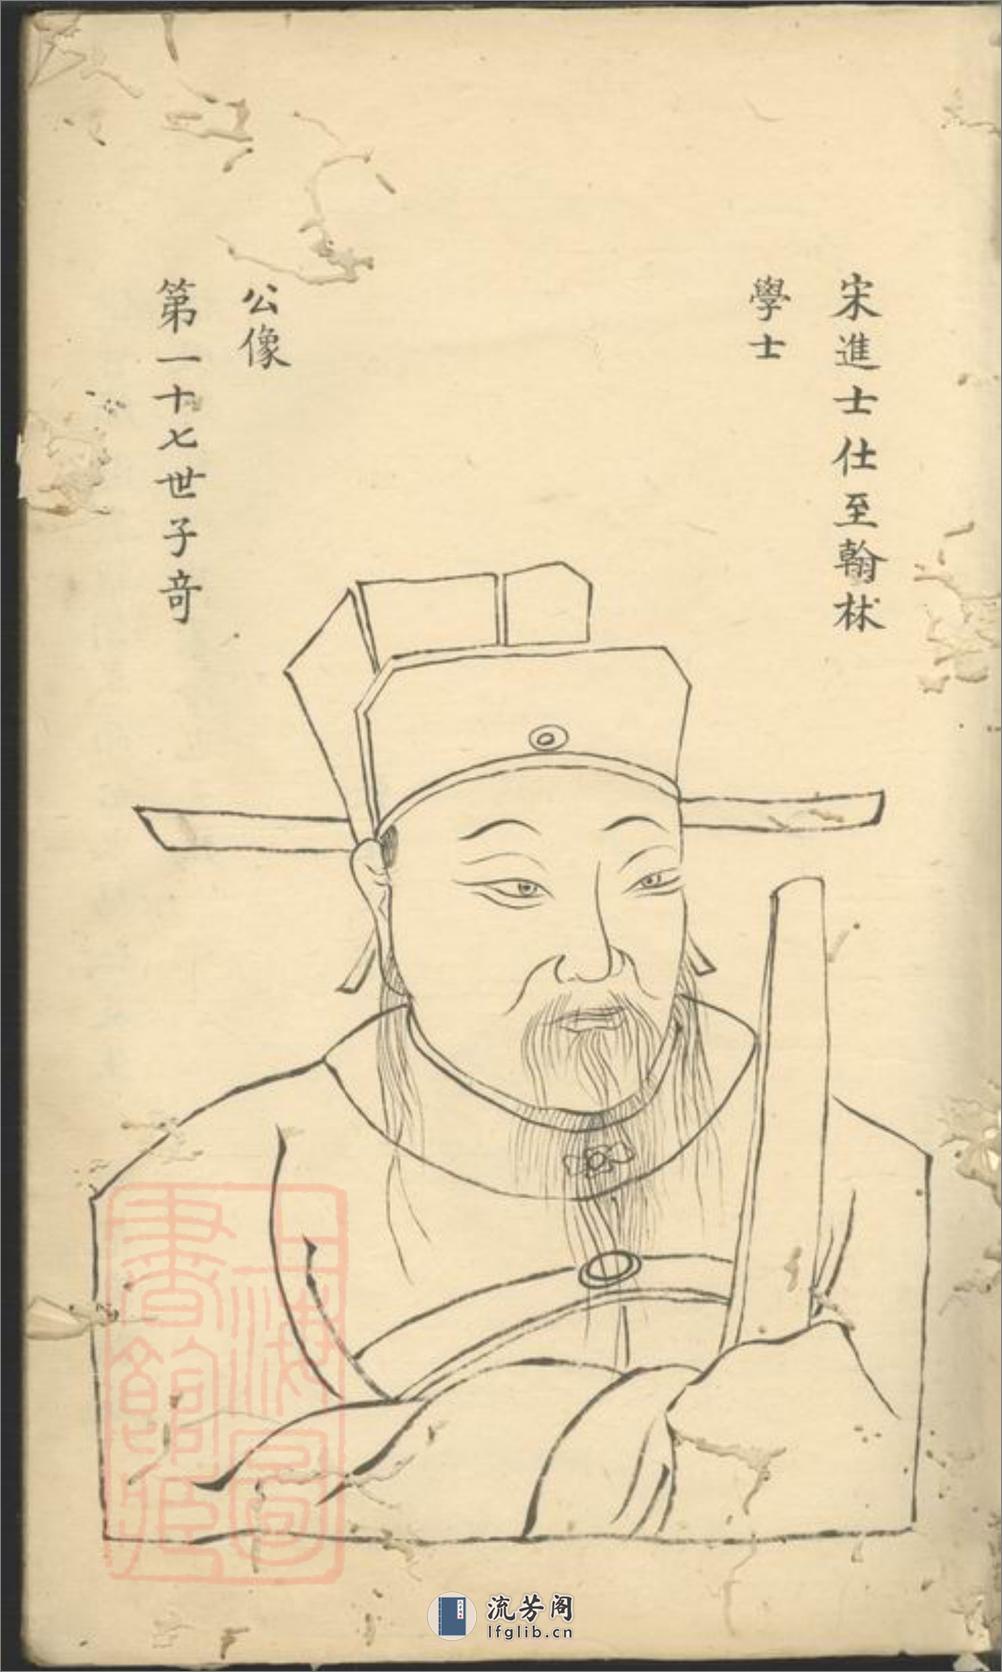 宋進士仕至翰林
學士
第一十七世子竒
公像
上海圖
書館藏
流芳阁
lfglib.cn